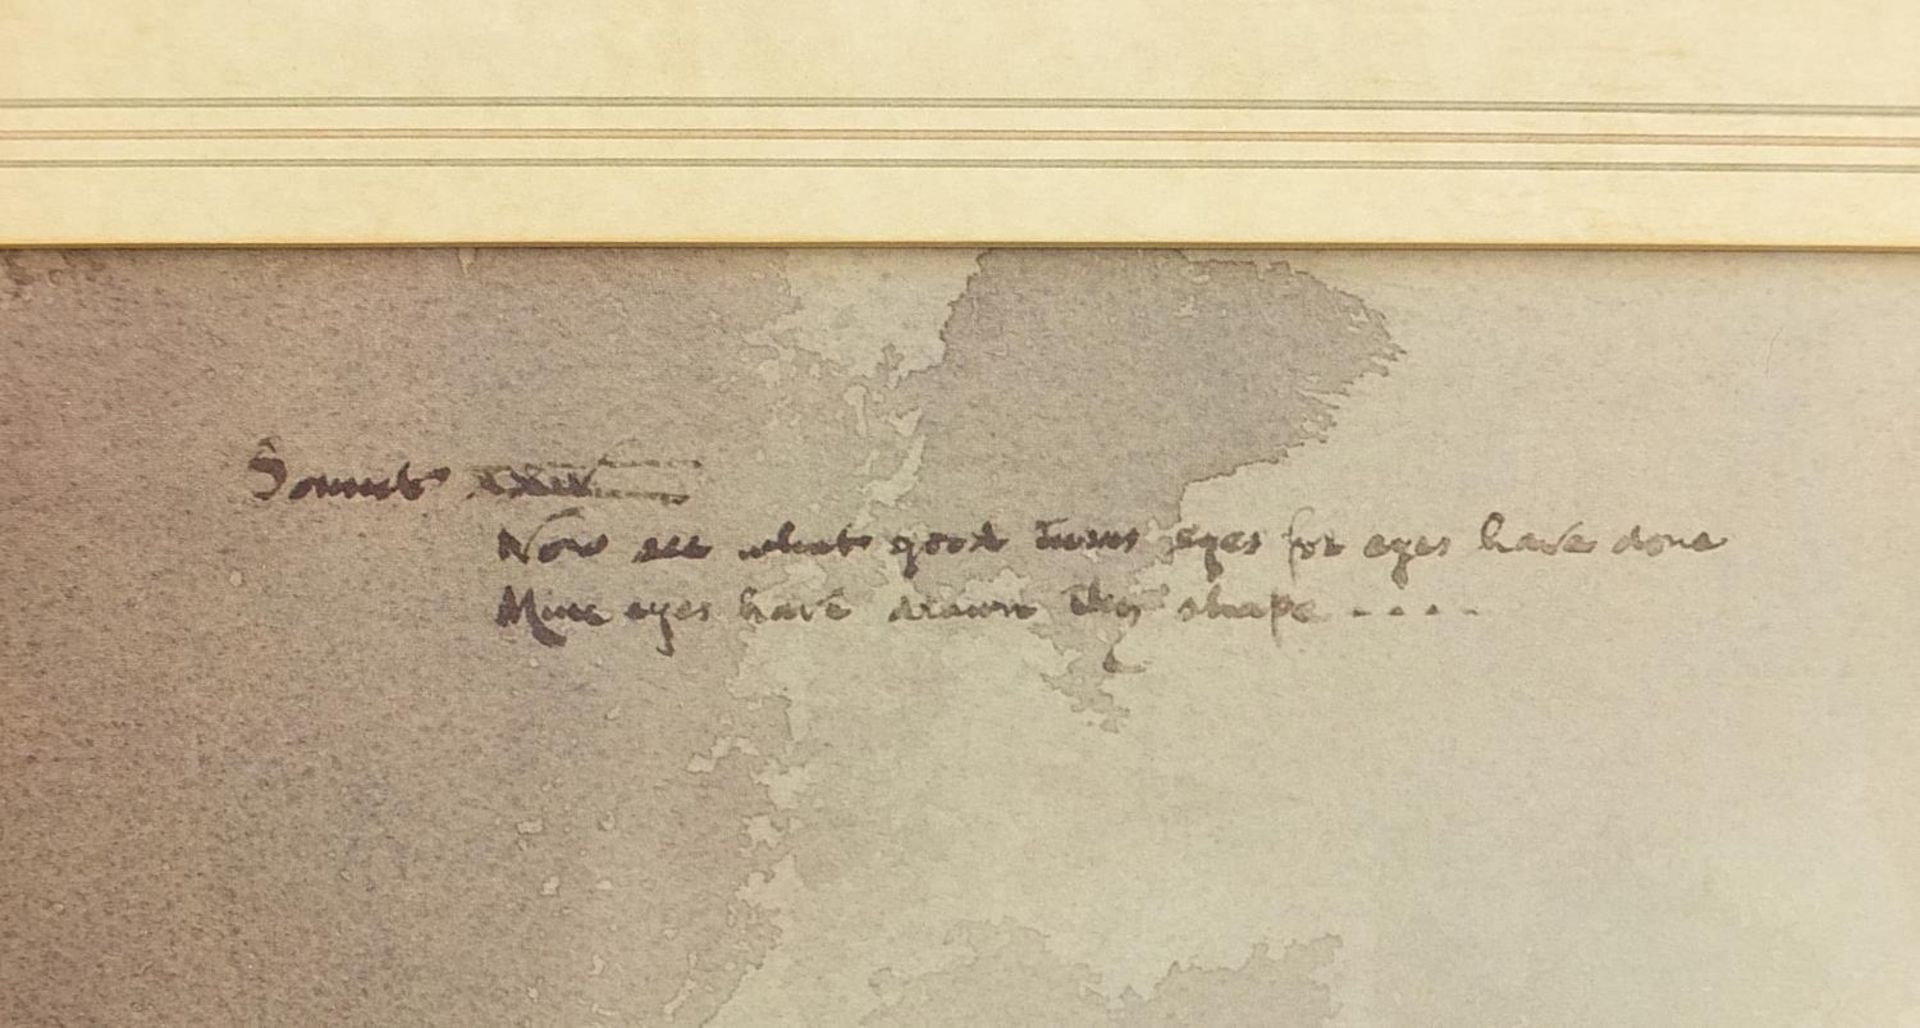 Sonnet xxiv
Now see what good turns eyes for eyes have done
Mine eyes have drawn thy shape . . . .